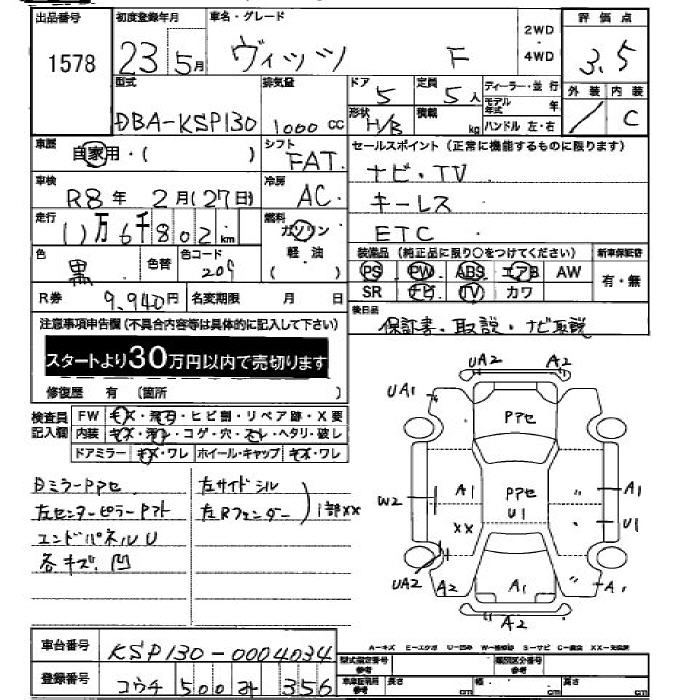 出品番号 初度登録年月 車名・グレード 2WD・4WD 評価点
1578 23 5月 ヴィッツ F 3.5
型式 排気量 ドア 定員 ディーラー・並行 外装 内装
DBA-KSP130 1000CC 5 5人 モデル年式 年 / C
形状 H/B 積載 kg ハンドル 左・右
車歴 自家用・( ) シフト FAT セールスポイント(正常に機能するものに限ります)
車検 R8年 2月(27日) 冷房 AC ナビ・TV
走行 11万6千802km 燃料 ガソリン キーレス
軽油 ETC
色 黒 色替 色コード 209 ( )
装備品(純正品に限り○をつけてください) 新車保証書
PS PW ABS エアB AW 有・無
SR ナビ TV カワ
R券 9,940円 名変期限 月 日
後日品 保証書・取説・ナビ取説
注意事項申告欄(不具合内容等は具体的に記入して下さい)
スタートより30万円以内で売切ります
修復歴 有(箇所 )
検査員記入欄 FW キズ・飛石・ヒビ割・リペア跡・X要
内装 キズ・汚レ・コゲ・穴・スレ・ヘタリ・破レ
ドアミラー キズ・ワレ ホイール・キャップ キズ・ワレ
DミラーPアセ 左サイドシル
左センターピラーPアト 左Rフェンダー 1部XX
エンドパネルU
各キズ、凹
UA2 A2
UA1 Pアセ
W2 A1 Pアセ U1 A1
XX U1
UA2 A2 A1 A1
A2
A-キズ E-エクボ U-凹み W-補修跡 S-サビ C-腐食 XX-交換済
車台番号 KSP130-0004034
登録番号 コウチ 500 み 356
型式指定番号 参考 類別区分番号 参考
車庫証明用 参考 長さ cm 幅 cm 高さ cm